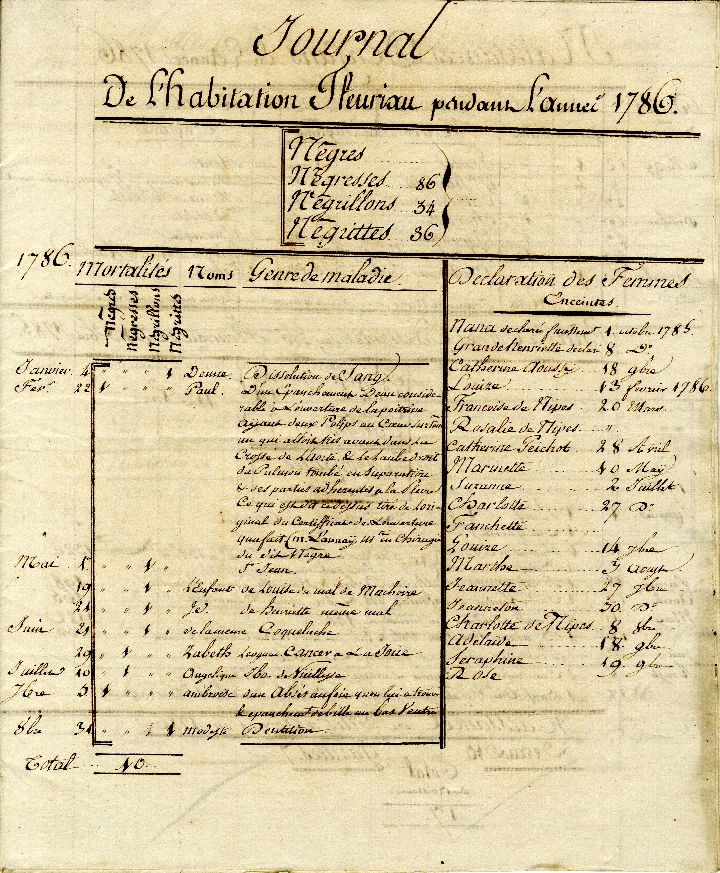 Journal
De L'habitation Fleuriau pendant L'anneé 1786.
Négres
Négresses 86
Négrillons 34
Négrittes 36
1786. Mortalités Noms Genre de maladie.
Négres Négresses Négrillons Négrittes
Janvier 4 " " " 1 Denne. Dissolution de Sang.
Fevr. 22 1 " " " Paul. D'un Epanchement Deau conside-
rable a Louverture de la poitrine
ayant deux Polips au Cœur surtout
un qui alloit tres avant dans La
Crosse de Laorte & le Laube droit
du Pulmon tombé en Supuration
& ses parties adherentes a la Plevre
Ce qui est dit cy dessus tiré de Lori-
ginal du Certifficat de Louverture
qua fait Mr. Launay, Me. en Chirurgie
du dit Négre
Mai 1 " " 1 " St. Jean.
19 " " 1 " L'Enfant de Louise du mal de Machoire
24 " " 1 " Jd. de henriette même mal
Juin 21 " " 1 " de la meme Coqueluche
29 " 1 " " Zabeth Cancer a La Joüe
Juillet 10 " 1 " " Angelique de Vieillesse
7bre 5 1 " " " ambroise d'un Absés au foie
& epanchement de bille au bas Ventre
8bre 31 " " " 1 modeste Dentition
Total 10
Déclaration des Femmes
Enceintes.
Nana declarée faussement 1 octobre 1785.
Grande henriette declar 8 Do.
Catherine 18 9bre
Louize 13 fevrier 1786.
Francoise de Nipes 20 Mars
Rosalie de Nipes "
Catherine Peichot 28 Avril
Marinette 10 May
Suzanne 2 Juillet
Charlotte 27 Do.
Fanchette
Louize 14 7bre
Marthe 3 Aoust
Jeannette 27 7bre
Jeanneton 30 Do.
Charlotte de Nipes 8 8bre
Adelaide 18 9bre
Seraphine 19 9bre
Rose